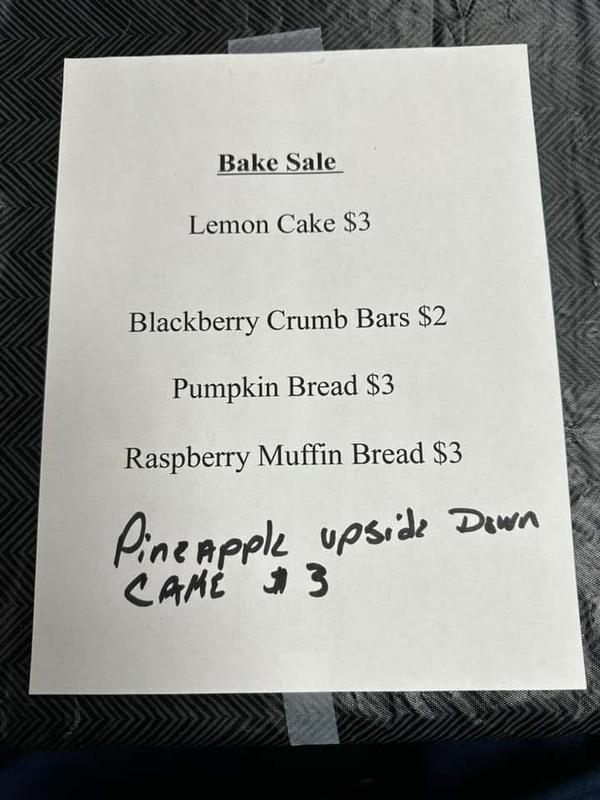 Bake Sale
Lemon Cake $3
Blackberry Crumb Bars $2
Pumpkin Bread $3
Raspberry Muffin Bread $3
Pineapple upside Down
CAKE $3